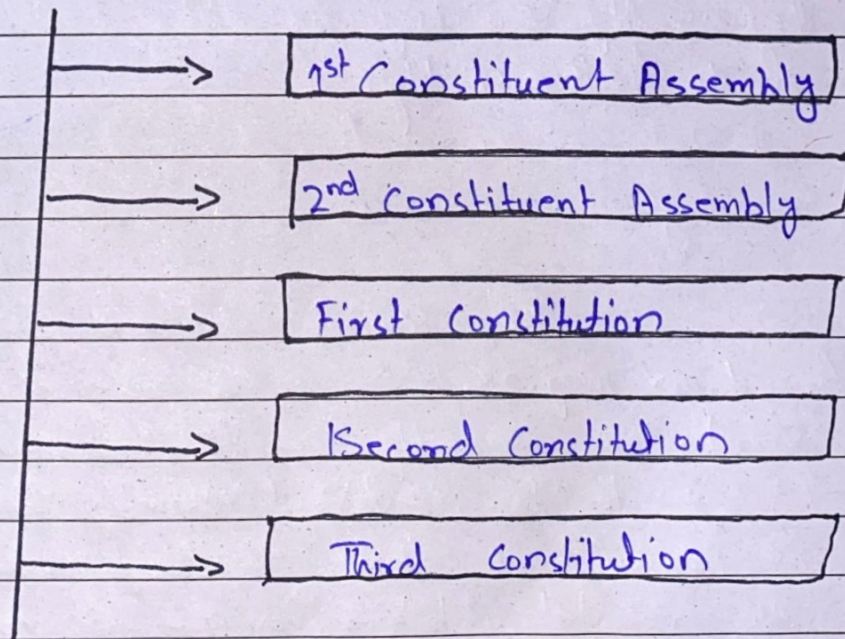 1st Constituent Assembly
2nd Constituent Assembly
First Constitution
Second Constitution
Third Constitution